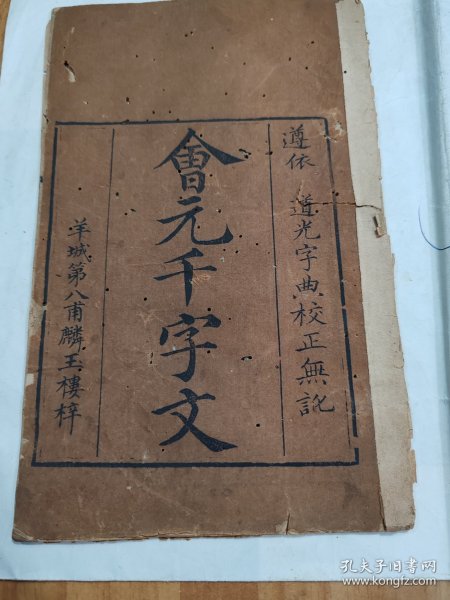 遵依 道光字典校正無訛
會元千字文
羊城第八甫麟玉樓梓
孔夫子旧书网
www.kongfz.com